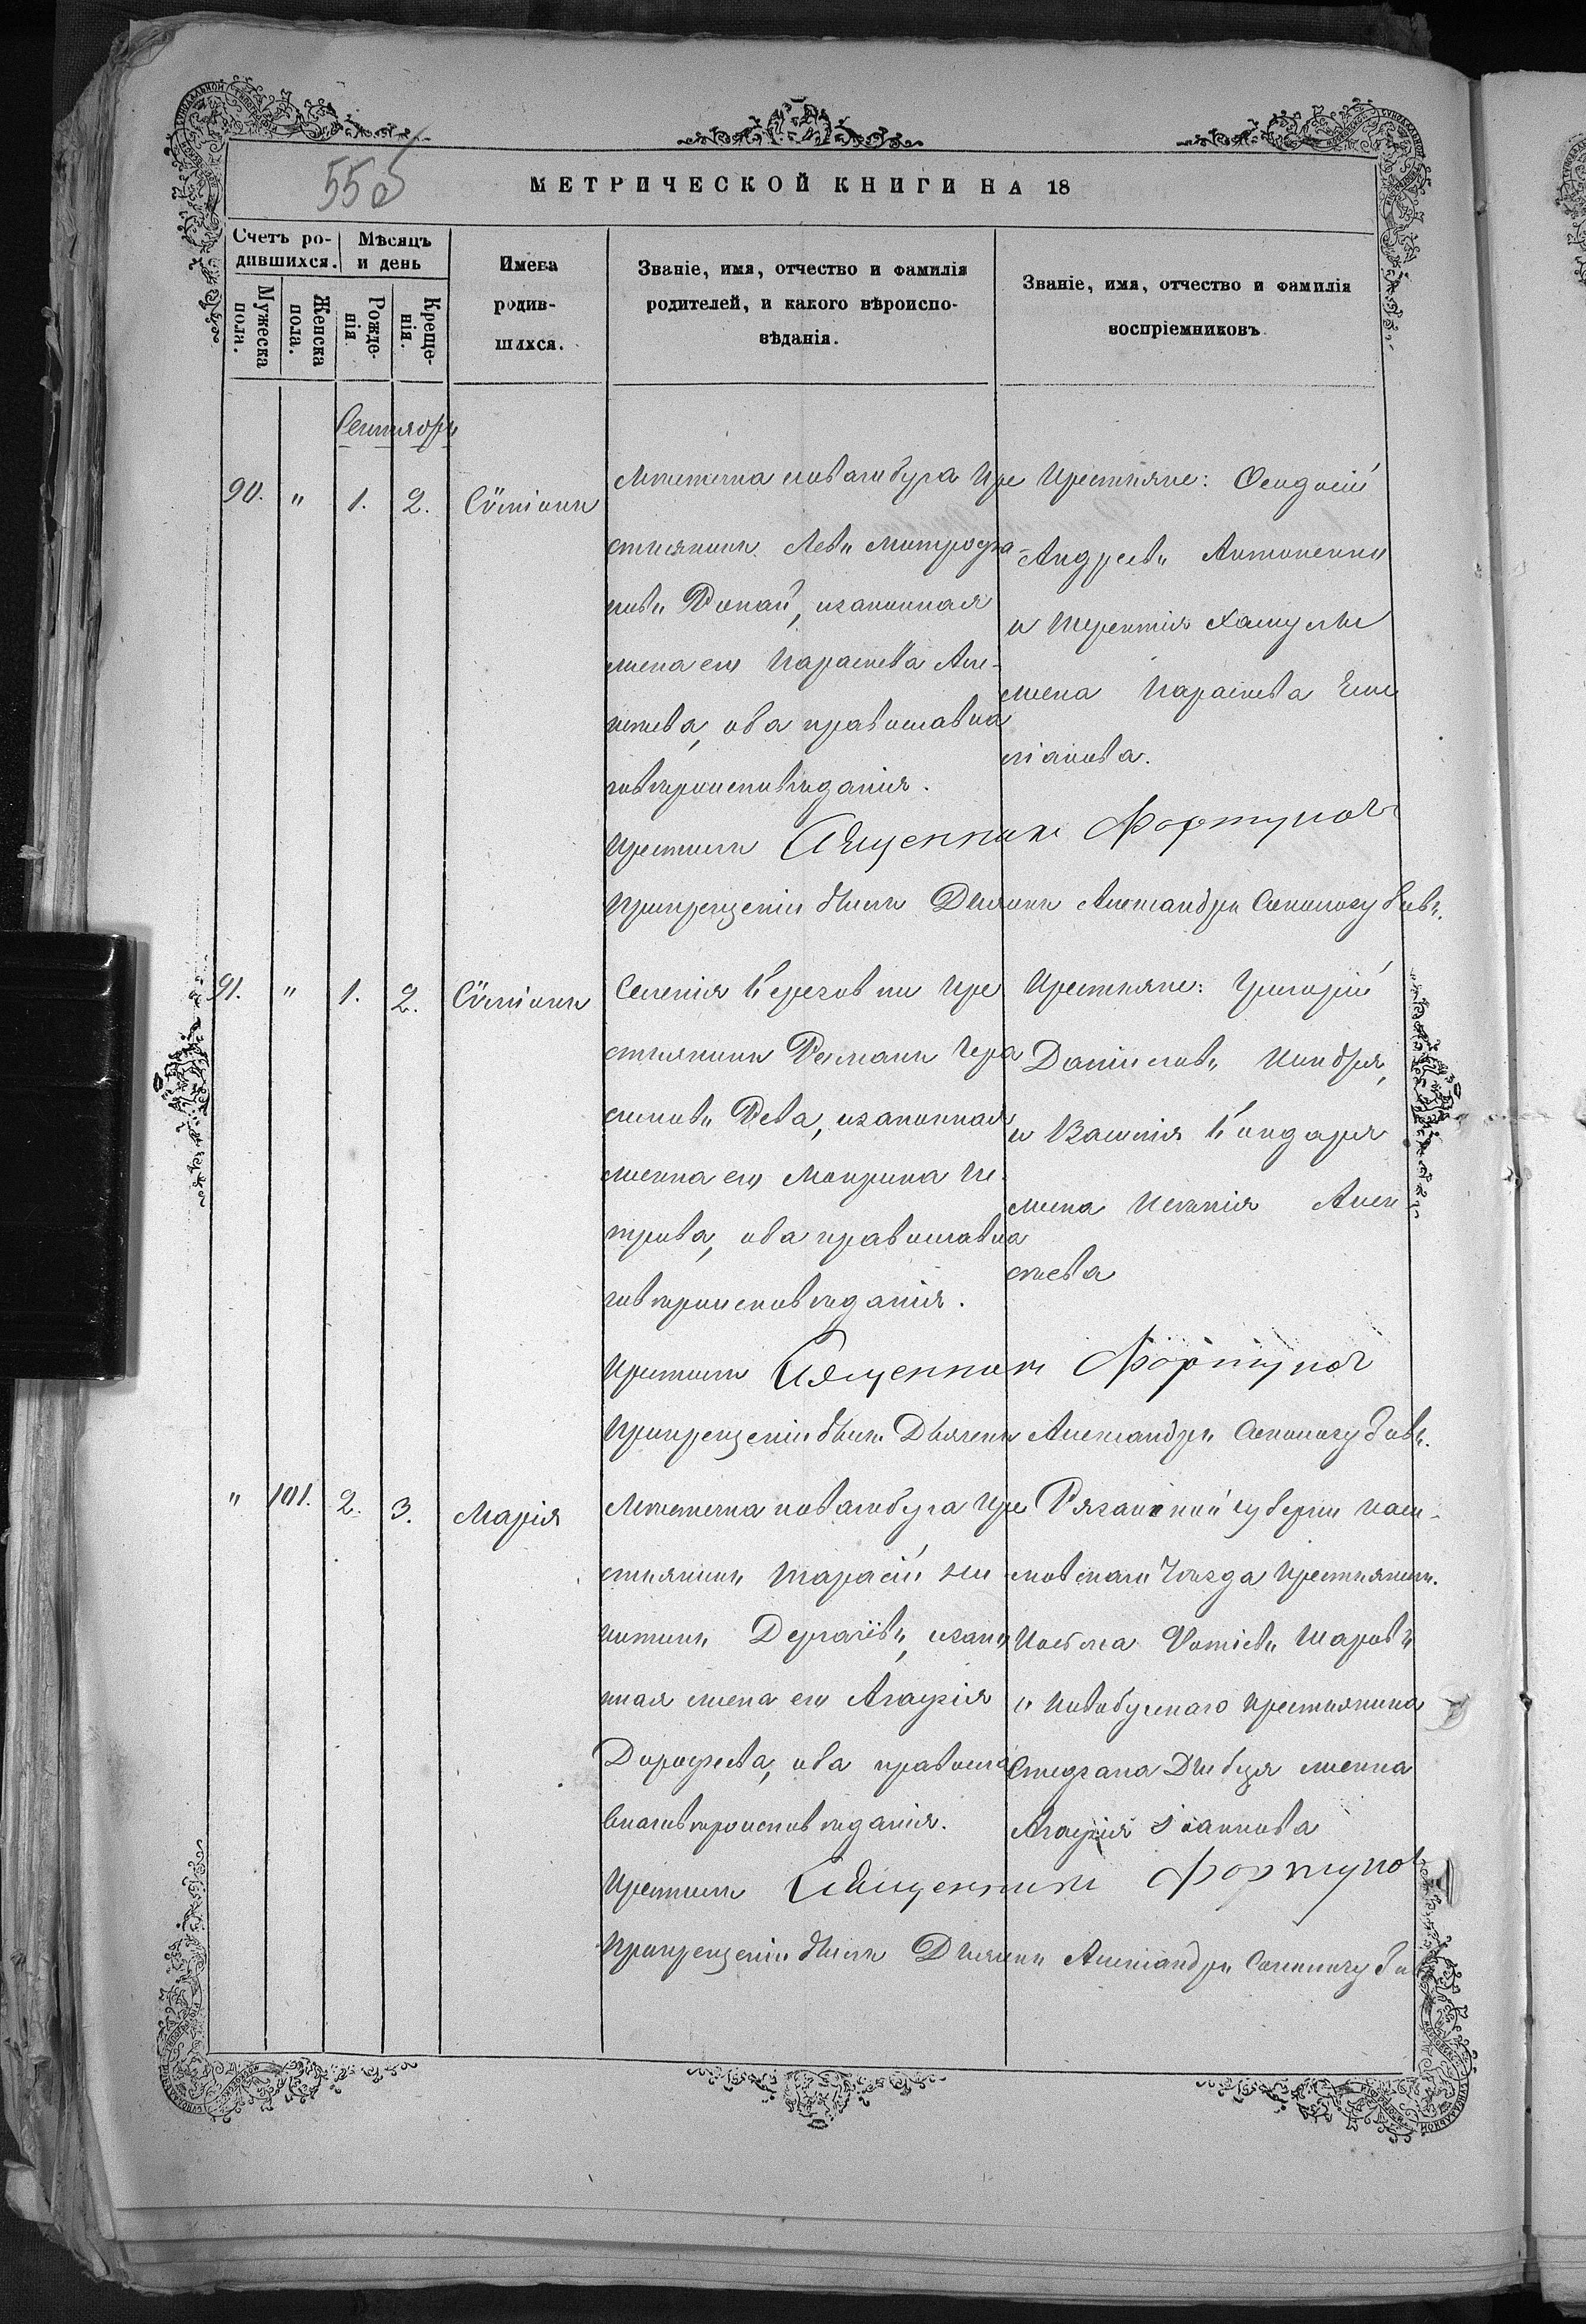 55об
МЕТРИЧЕСКОЙ КНИГИ НА 18
Счетъ ро-
дившихся.
Мѣсяцъ
и день
Мужеска
пола.
Женска
пола.
Рожде-
нія
Креще-
нія.
Имена
родив-
шихся.
Званіе, имя, отчество и фамилія
родителей, и какого вѣроиспо-
вѣданія.
Званіе, имя, отчество и фамилія
воспріемниковъ
Сентябрь
90. " 1. 2. Сѵмеонъ
Мѣстечка Новагобуга Кре
стьянинъ Левъ Митрофа-
новъ Репай, изаконная
жена его Параскева Але-
ксѣева, оба православна
говѣроисповѣданія.
Крестьяне: Феодосій
Андреевъ Антоненко
и Терентія
жена Параскева Еми
ліанова.
Крестилъ Священникъ Фортуновъ
Прикрещеніи былъ Дьячекъ Александръ Скологубовъ.
91. " 1. 2. Сѵмеонъ
Селенія Березовки Кре
стьянинъ Романъ Гера
симовъ Рева, изаконная
жена его Мокрина Пе-
трова, оба православна
говѣроисповѣданія.
Крестьяне: Григорій
Даніиловъ Ковбря,
и Василія Бондаря
жена Ксенія Алек
сѣева
Крестилъ Священникъ Фортуновъ
Прикрещеніи былъ Дьячекъ Александръ Скологубовъ.
" 101. 2. 3. Марія
Мѣстечка Новагобуга Кре
стьянинъ Тарасій Ни
китинъ Дергачевъ, изакон
ная жена его Агафія
Дорофеева, оба правосла
внаговѣроисповѣданія.
Рязанской губерніи Каси-
мовскаго Уѣзда Крестьянинъ
Козьма Фотіевъ Шаровъ
и Новобугскаго Крестьянина
Стефана жена
Агафія Іоаннова
Крестилъ Священникъ Фортуновъ
Прикрещеніи былъ Дьячекъ Александръ Скологубовъ